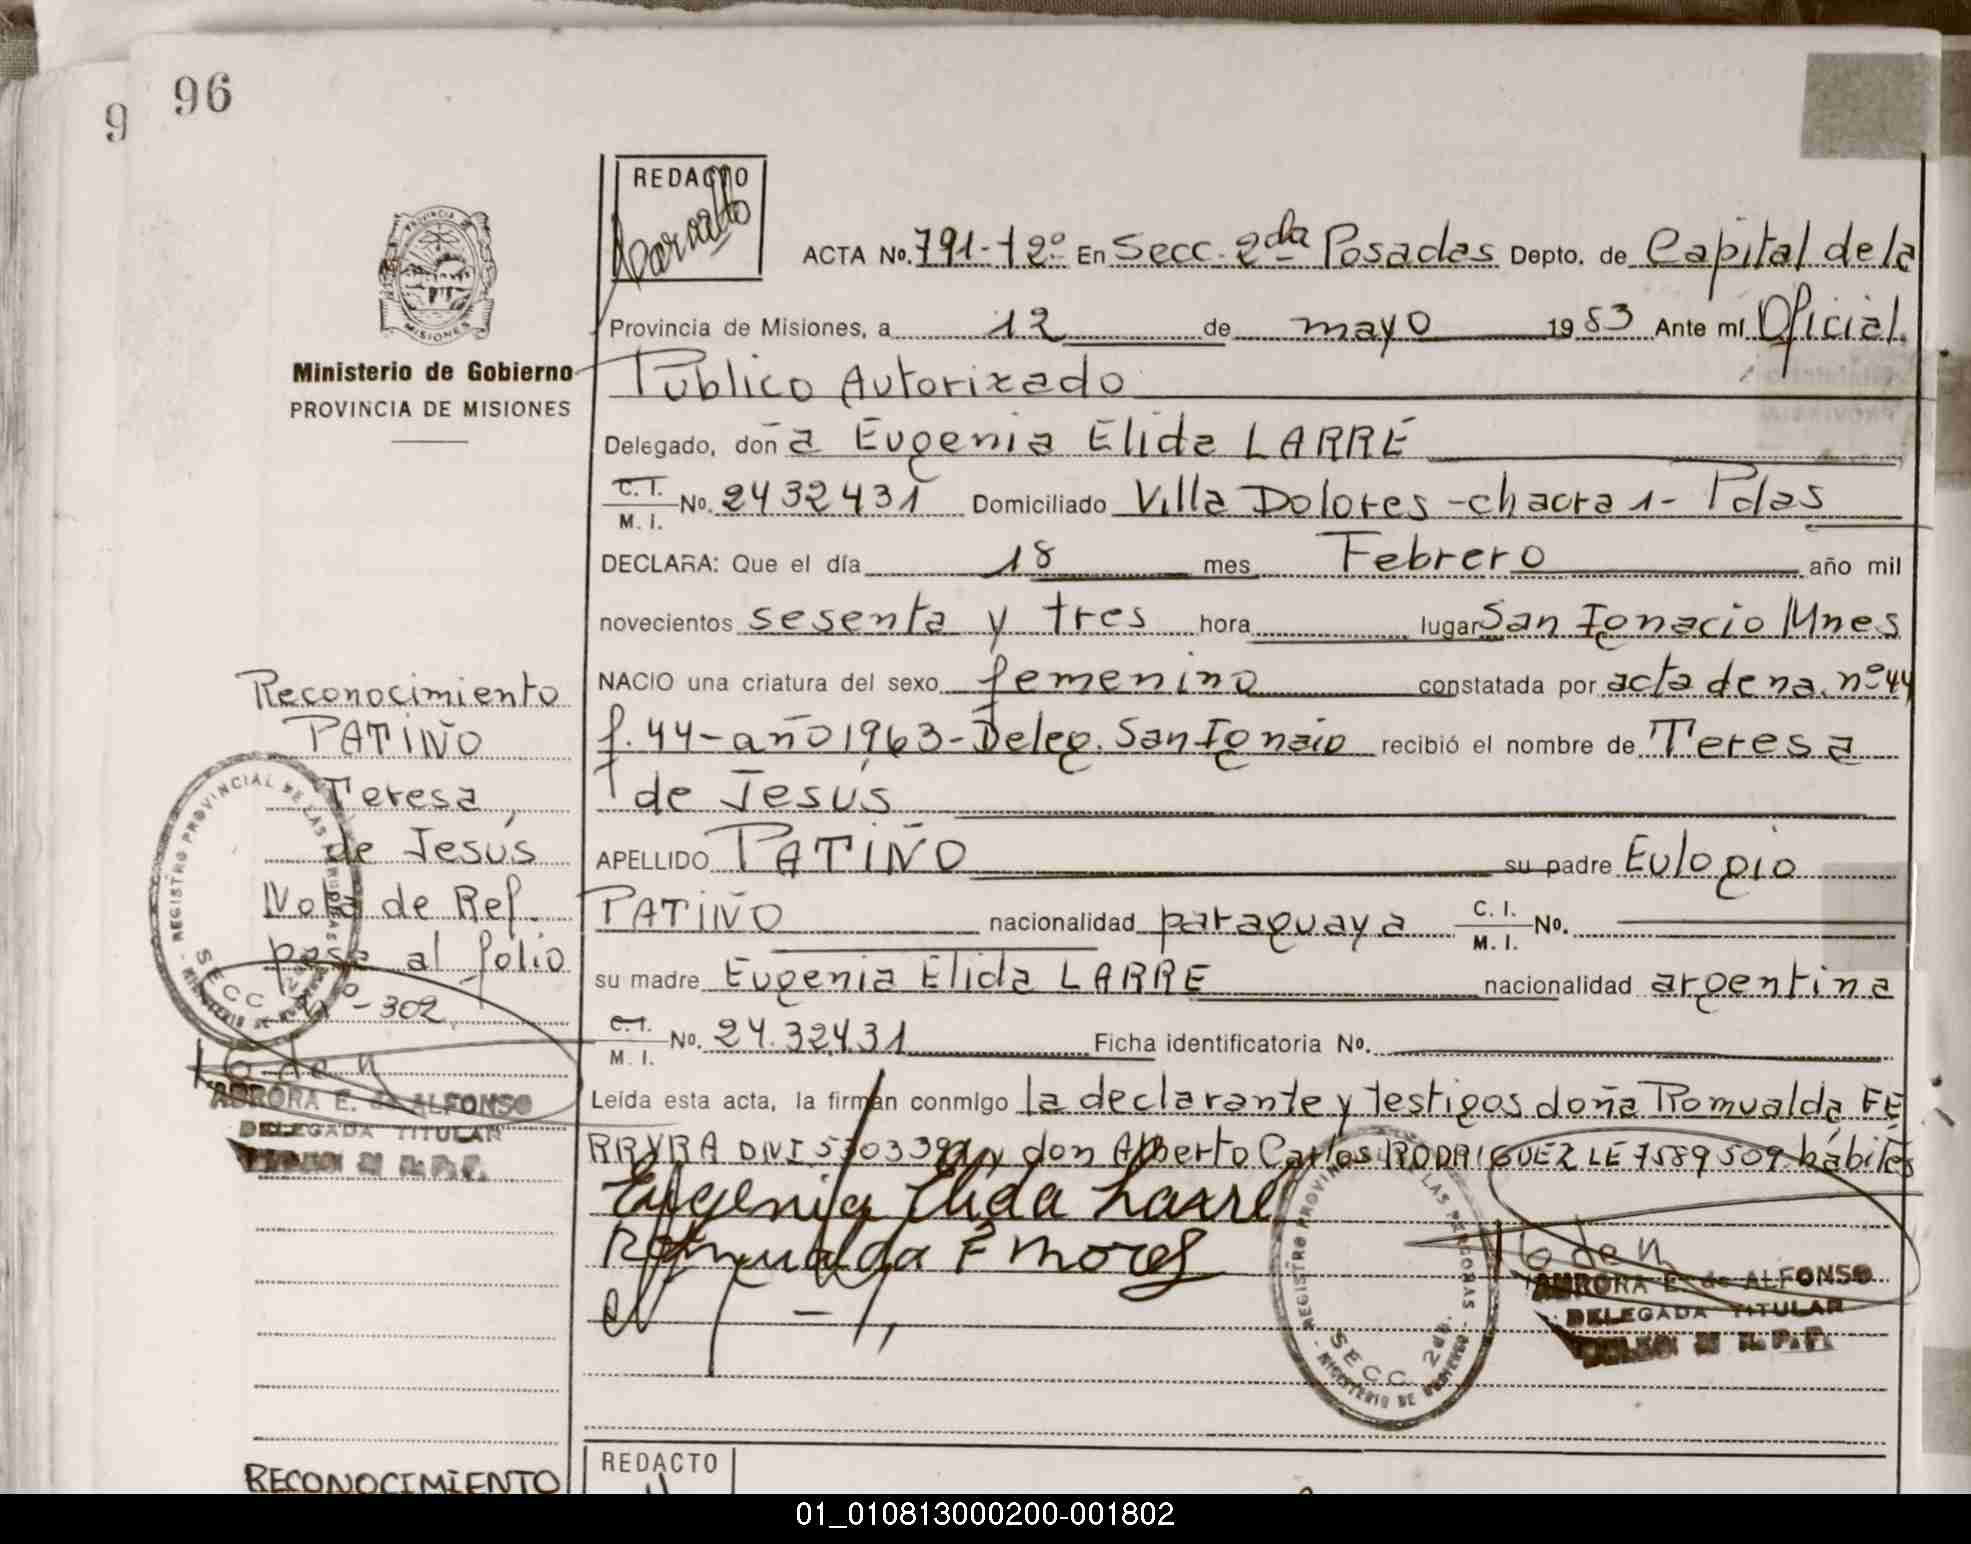 96
9
REDACTO
ACTA No. 791-Tº2º En Secc. 2da Posadas Depto. de Capital de la
Provincia de Misiones, a 12 de mayo 1983 Ante mí Oficial
Ministerio de Gobierno
PROVINCIA DE MISIONES
Público Autorizado
Delegado, doña Eugenia Elida LARRÉ
C. I. M. I. No. 2432431 Domiciliado Villa Dolores - chacra 1 - Pdas
DECLARA: Que el día 18 mes Febrero año mil
novecientos sesenta y tres hora lugar San Ignacio Mnes
NACIO una criatura del sexo femenino constatada por acta de na. nº 44
f. 44 - año 1963 - Deleg. San Ignaio recibió el nombre de Teresa
de Jesús
APELLIDO PATIÑO su padre Eulogio
PATIÑO nacionalidad paraguaya C. I. M. I. No.
su madre Eugenia Elida LARRE nacionalidad argentina
C. I. M. I. No. 24.32431 Ficha identificatoria No.
Leída esta acta, la firman conmigo la declarante y testigos doña Romualda FE
RRYRA DNI y don Alberto Carlos RODRIGUEZ LE 7589509 hábiles
Eugenia Elida Larre
Romualda F
Reconocimiento
PATIÑO
Teresa
de Jesús
Nota de Ref.
pasa al folio
Nº - 302
REGISTRO PROVINCIAL DE LAS PERSONAS
SECC. 2da.
MINISTERIO DE GOBIERNO
AURORA E. de ALFONSO
DELEGADA TITULAR
REGISTRO PROVINCIAL DE LAS PERSONAS
SECC. 2da.
MINISTERIO DE GOBIERNO
AURORA E. de ALFONSO
DELEGADA TITULAR
RECONOCIMIENTO
REDACTO
01_010813000200-001802